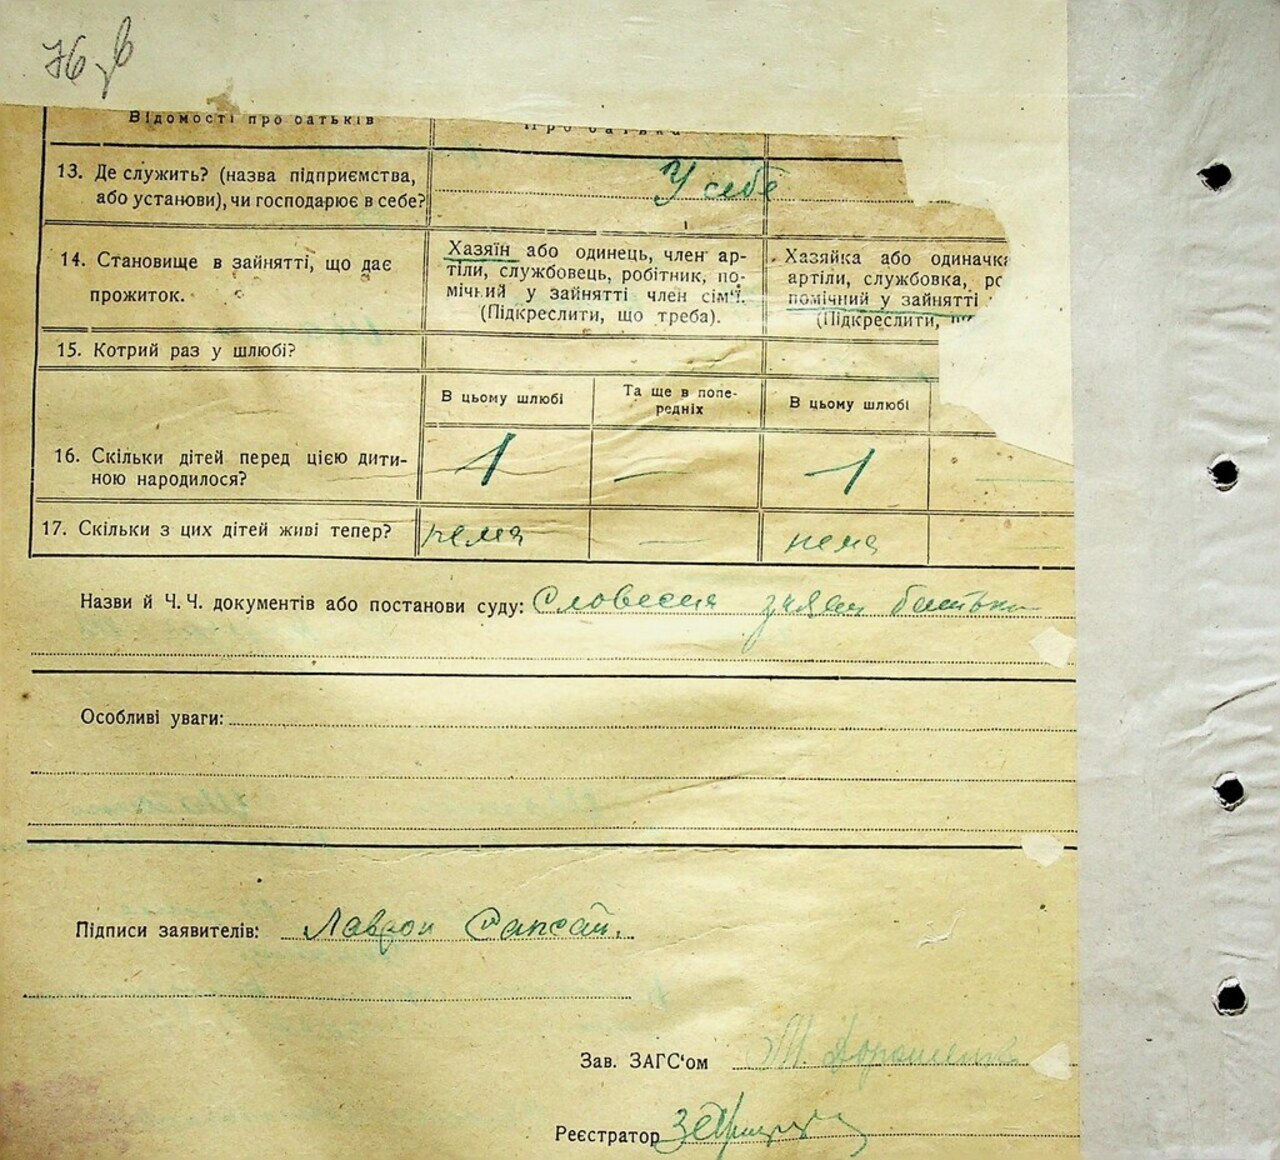 76
Відомості про батьків
Про батька
13. Де служить? (назва підприємства,
або установи), чи господарює в себе?
У себе
14. Становище в зайнятті, що дає
прожиток.
Хазяїн або одинець, член ар-
тіли, службовець, робітник, по-
мічний у зайнятті член сім'ї.
(Підкреслити, що треба).
Хазяйка або одиначка
артіли, службовка, ро
помічний у зайнятті
(Підкреслити,
15. Котрий раз у шлюбі?
В цьому шлюбі
Та ще в попе-
редніх
В цьому шлюбі
16. Скільки дітей перед цією дити-
ною народилося?
1 — 1 —
17. Скільки з цих дітей живі тепер?
нема — нема —
Назви й Ч. Ч. документів або постанови суду: Словесна заява батька
Особливі уваги:
Підписи заявителів: Лаврон Сапсай.
Зав. ЗАГС'ом М. Дорошенко
Реєстратор